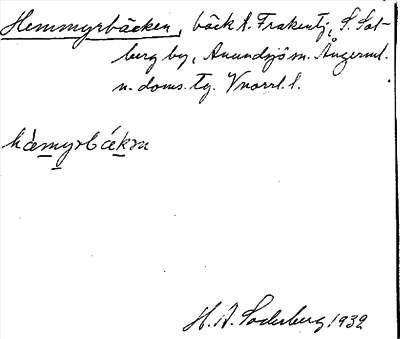 Hemmyrbäcken, bäck t. Frakentj, S. Sol-
berg by, Anundsjö sn. Ångerml.
n. doms. tg. Vnorrl. l.
hæ̀myrbǽkɴ
H. A. Söderberg 1932